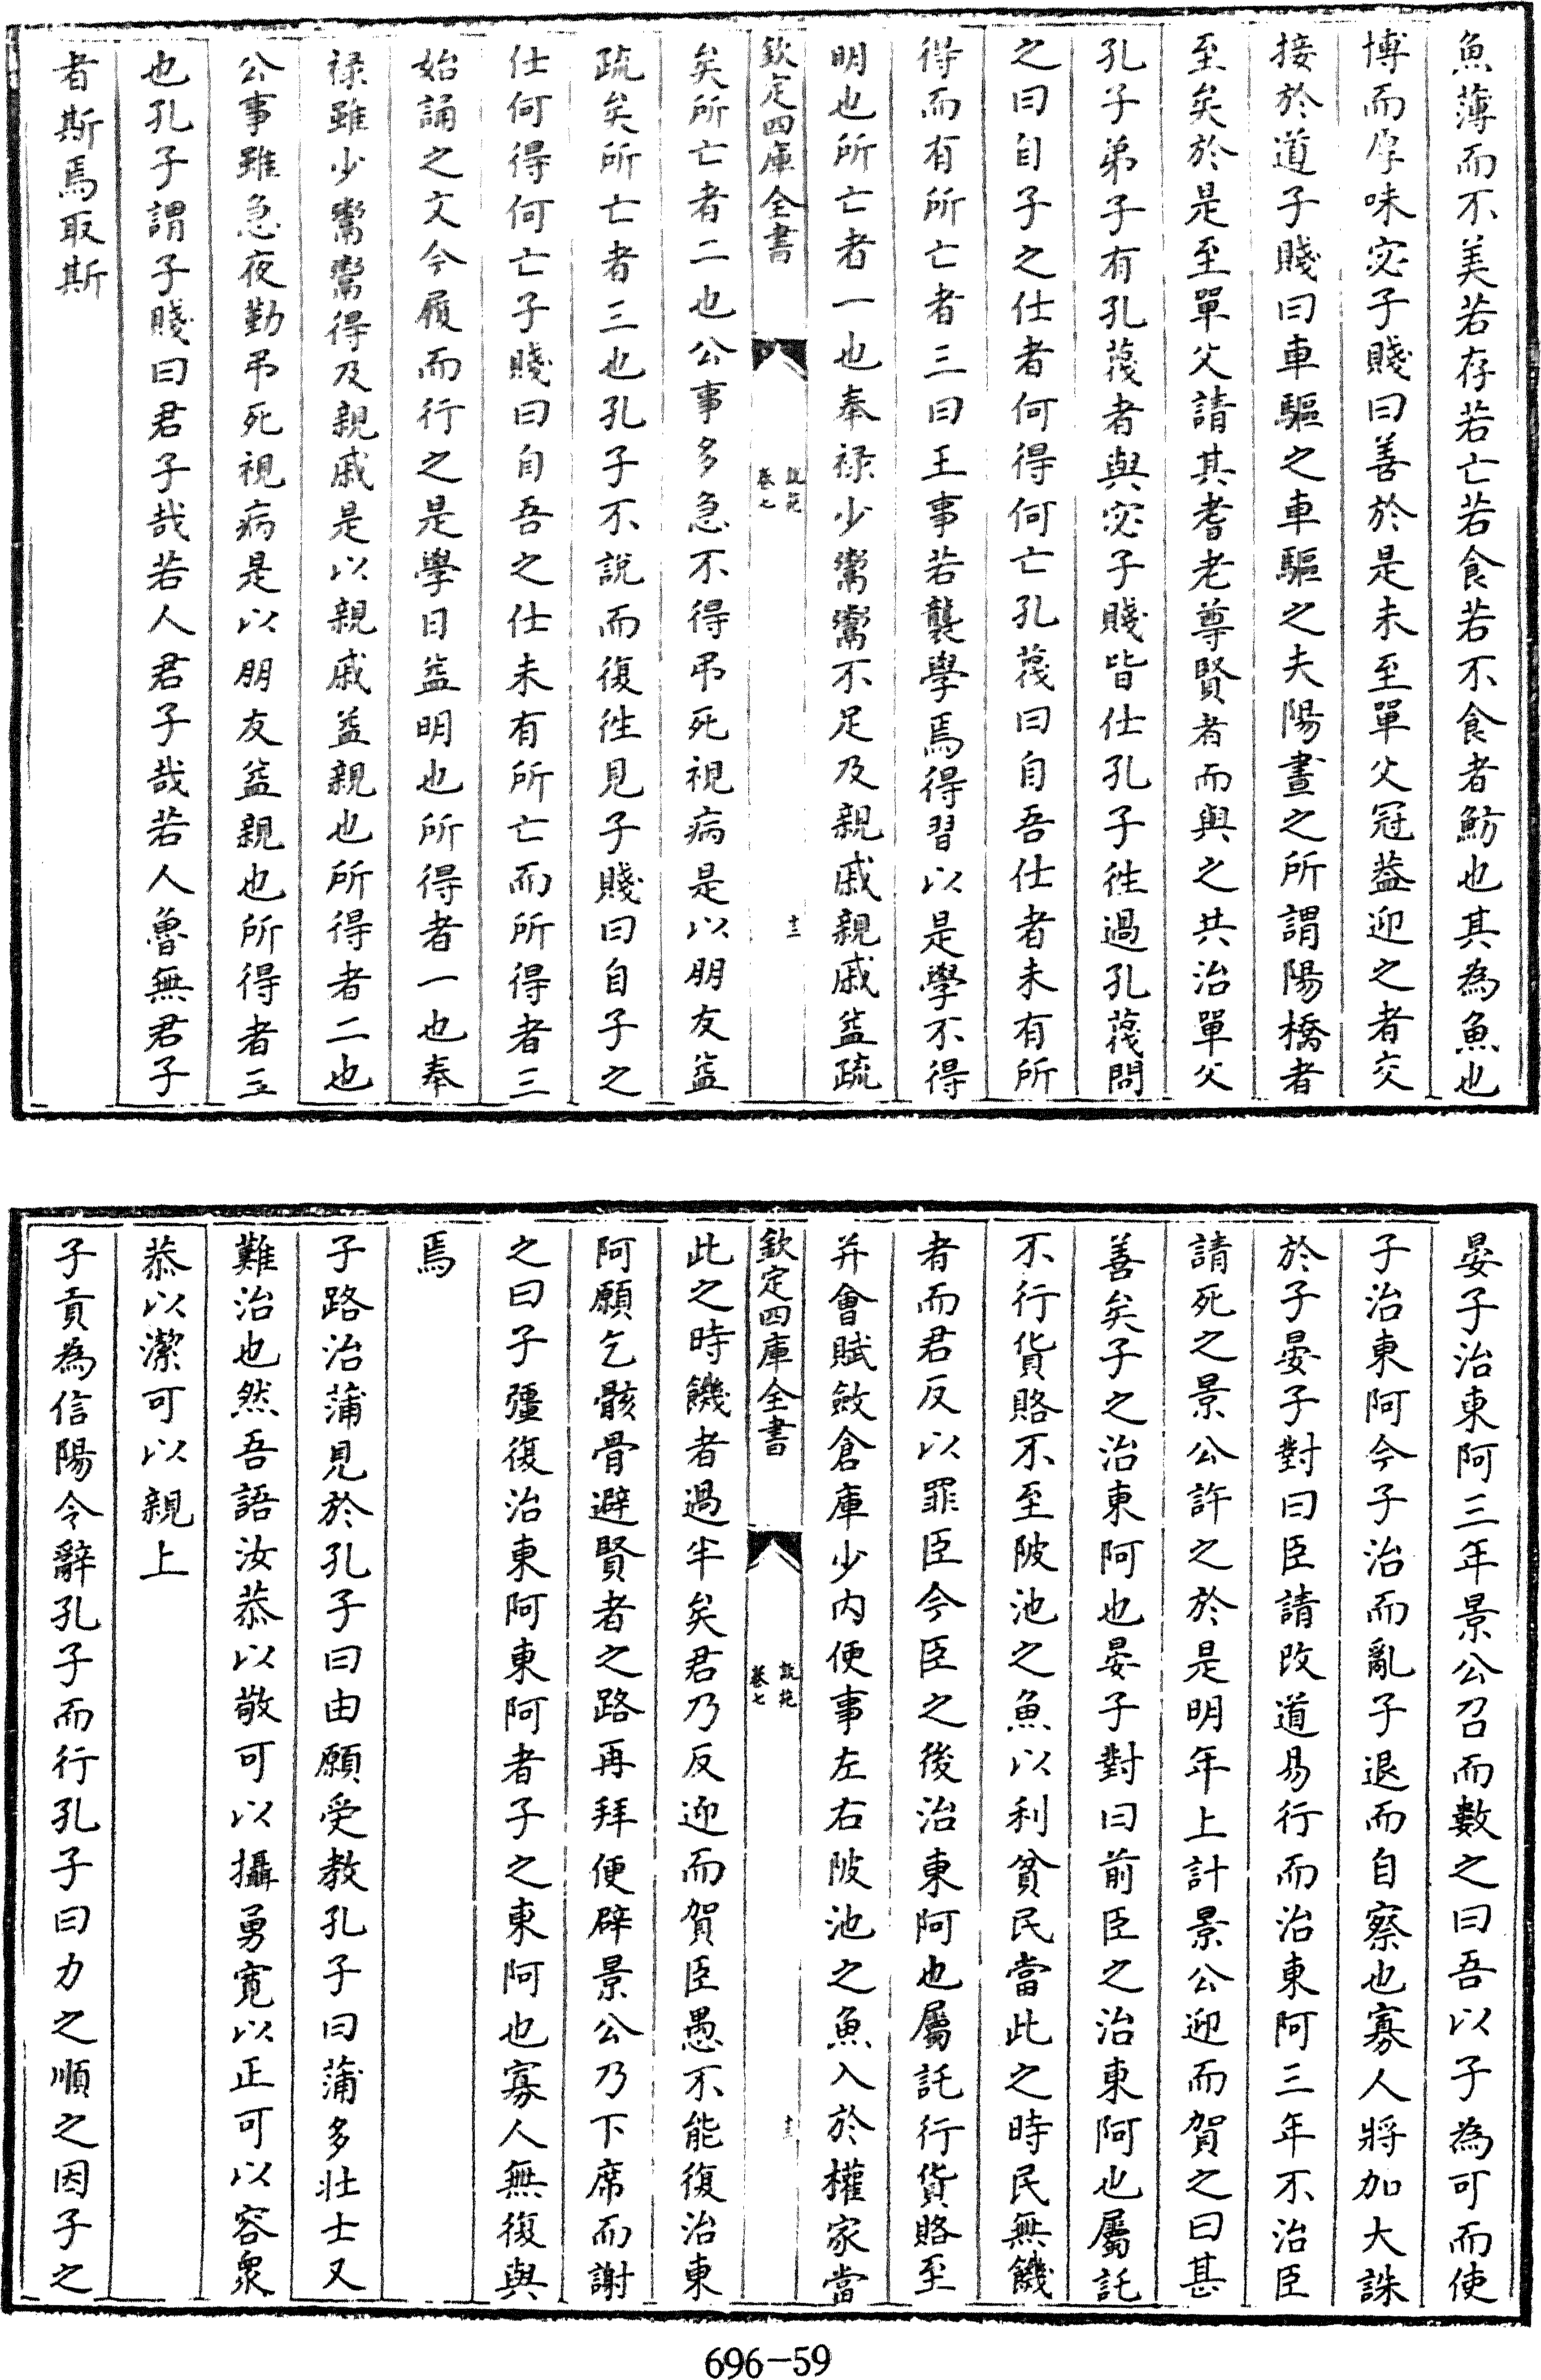 魚薄而不美若存若亡若食若不食者魴也其為魚也
博而厚味宓子賤曰善於是未至單父冠葢迎之者交
接於道子賤曰車驅之車驅之夫陽晝之所謂陽橋者
至矣於是至單父請其耆老尊賢者而與之共治單父
孔子弟子有孔蔑者與宓子賤皆仕孔子徃過孔蔑問
之曰自子之仕者何得何亡孔蔑曰自吾仕者未有所
得而有所亡者三曰王事若襲學焉得習以是學不得
明也所亡者一也奉禄少鬻鬻不足及親戚親戚益疏
欽定四庫全書
説苑
卷七
十二
矣所亡者二也公事多急不得弔死視病是以朋友益
疏矣所亡者三也孔子不說而復徃見子賤曰自子之
仕何得何亡子賤曰自吾之仕未有所亡而所得者三
始誦之文今履而行之是學日益明也所得者一也奉
禄雖少鬻鬻得及親戚是以親戚益親也所得者二也
公事雖急夜勤弔死視病是以朋友益親也所得者三
也孔子謂子賤曰君子哉若人君子哉若人魯無君子
者斯焉取斯
晏子治東阿三年景公召而數之曰吾以子為可而使
子治東阿今子治而亂子退而自察也寡人將加大誅
於子晏子對曰臣請改道易行而治東阿三年不治臣
請死之景公許之於是明年上計景公迎而賀之曰甚
善矣子之治東阿也晏子對曰前臣之治東阿也屬託
不行貨賂不至陂池之魚以利貧民當此之時民無饑
者而君反以罪臣今臣之後治東阿也屬託行貨賂至
并會賦斂倉庫少内便事左右陂池之魚入於權家當
欽定四庫全書
説苑
卷七
十三
此之時饑者過半矣君乃反迎而賀臣愚不能復治東
阿願乞骸骨避賢者之路再拜便辟景公乃下席而謝
之曰子彊復治東阿東阿者子之東阿也寡人無復與
焉
子路治蒲見於孔子曰由願受教孔子曰蒲多壯士又
難治也然吾語汝恭以敬可以攝勇寬以正可以容衆
恭以潔可以親上
子貢為信陽令辭孔子而行孔子曰力之順之因子之
696-59